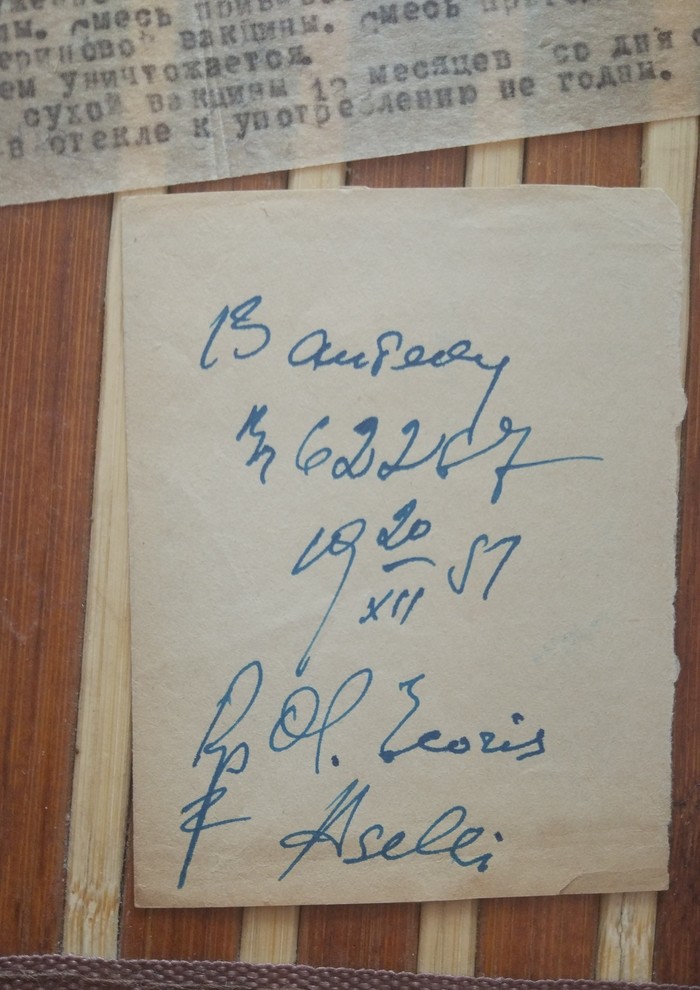 ы. смесь
вакцины. смесь
ем уничтожается.
сухой вакцины 12 месяцев со дня
в стекле к употреблению не годны.
В аптеку
№ 62257
19 20/XII 51
Rp Ol. Iecoris
Aselli